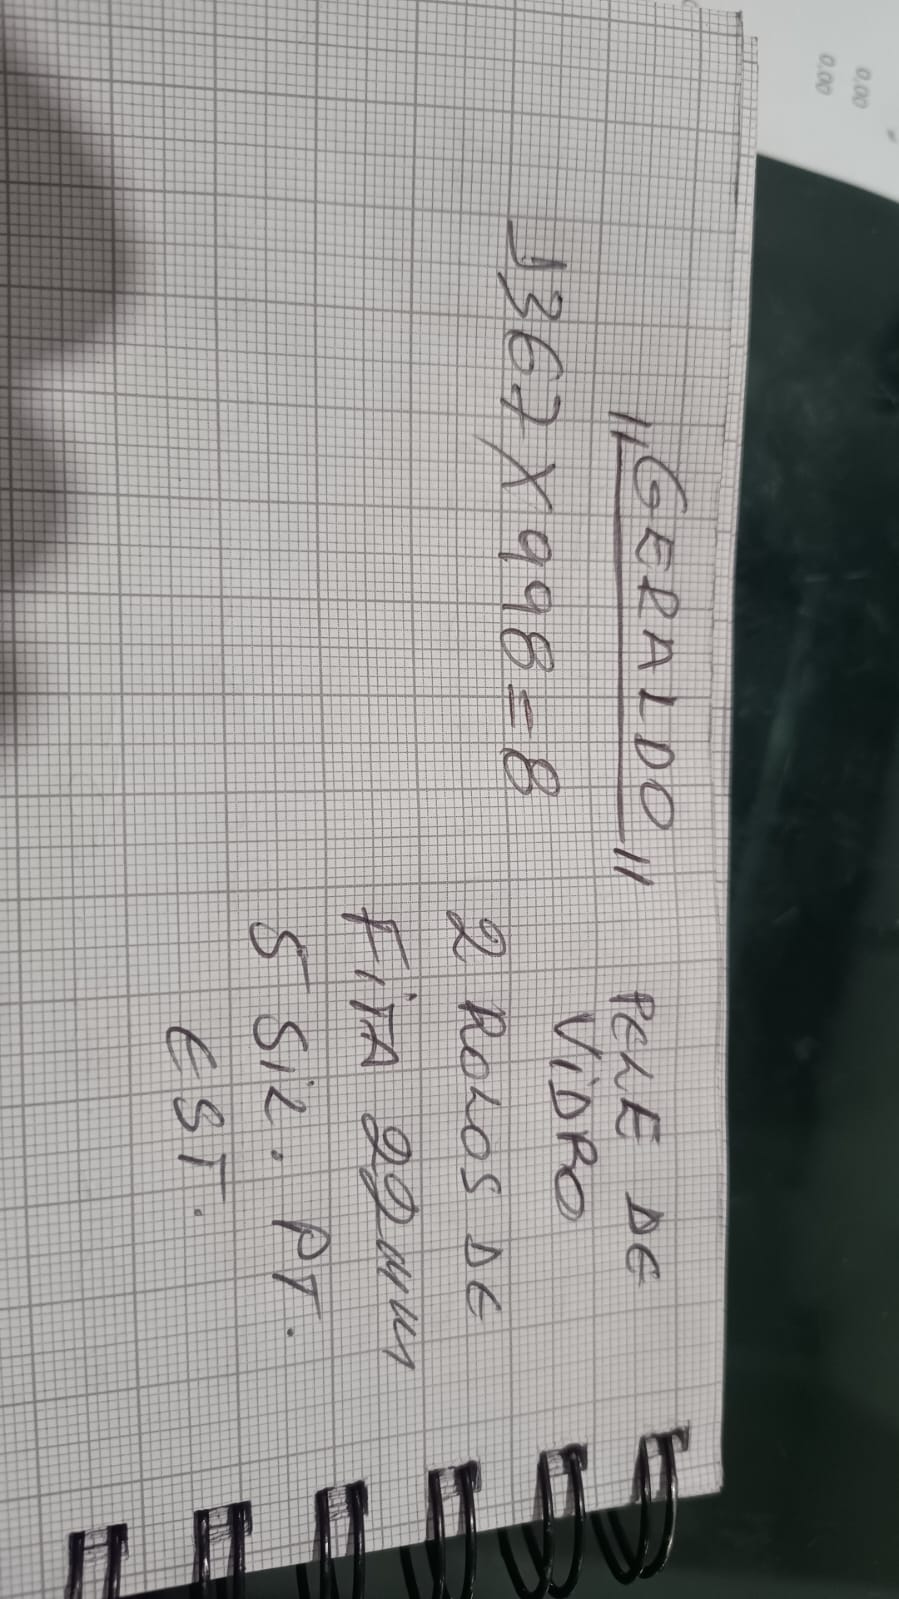 "GERALDO"
1367 X 998 = 8
PELE DE
VIDRO
2 ROLOS DE
FITA 22mm
5 SIL. PT.
EST.
0.00
0.00